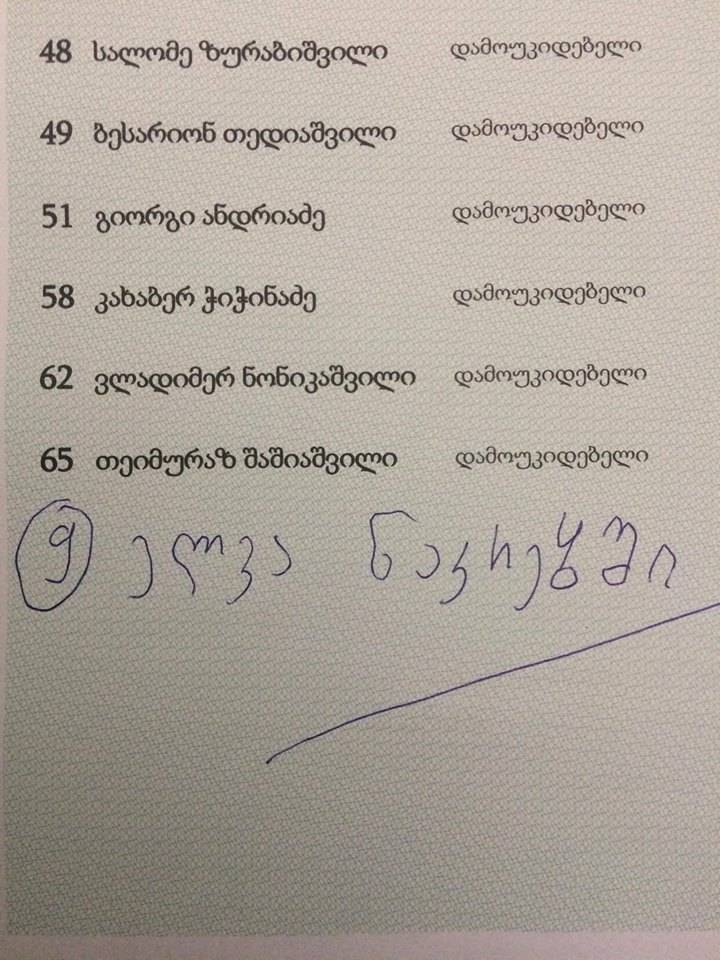 48 სალომე ზურაბიშვილი დამოუკიდებელი
49 ბესარიონ თედიაშვილი დამოუკიდებელი
51 გიორგი ანდრიაძე დამოუკიდებელი
58 კახაბერ ჭიჭინაძე დამოუკიდებელი
62 ვლადიმერ ნონიკაშვილი დამოუკიდებელი
65 თეიმურაზ შაშიაშვილი დამოუკიდებელი
9 ელვა ნაკრებში